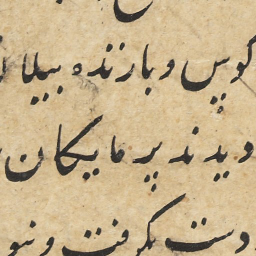 کوپس و بارنده بیلا
دیدند پر مایکان
دست بگرفت و